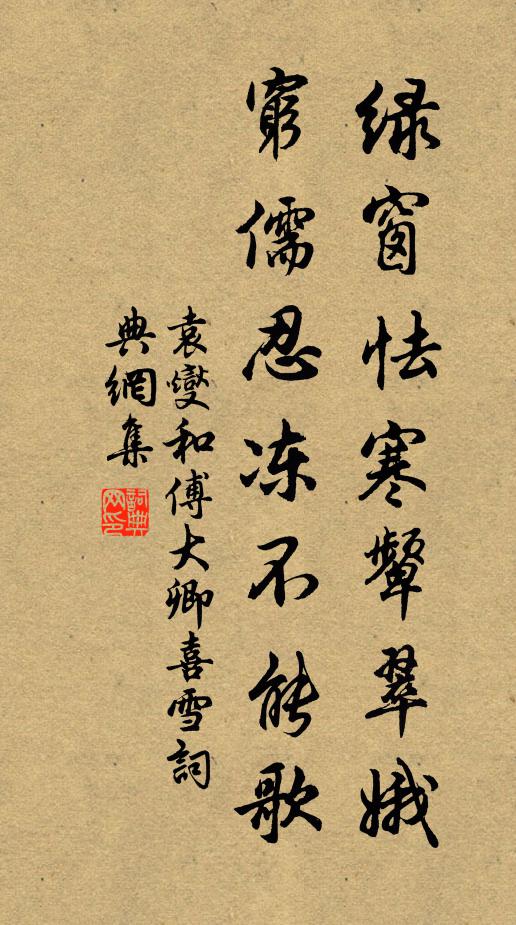 绿窗怯寒顰翠娥
窮儒忍冻不能歌
袁燮和傅大卿喜雪詞
典網集
詞典網印